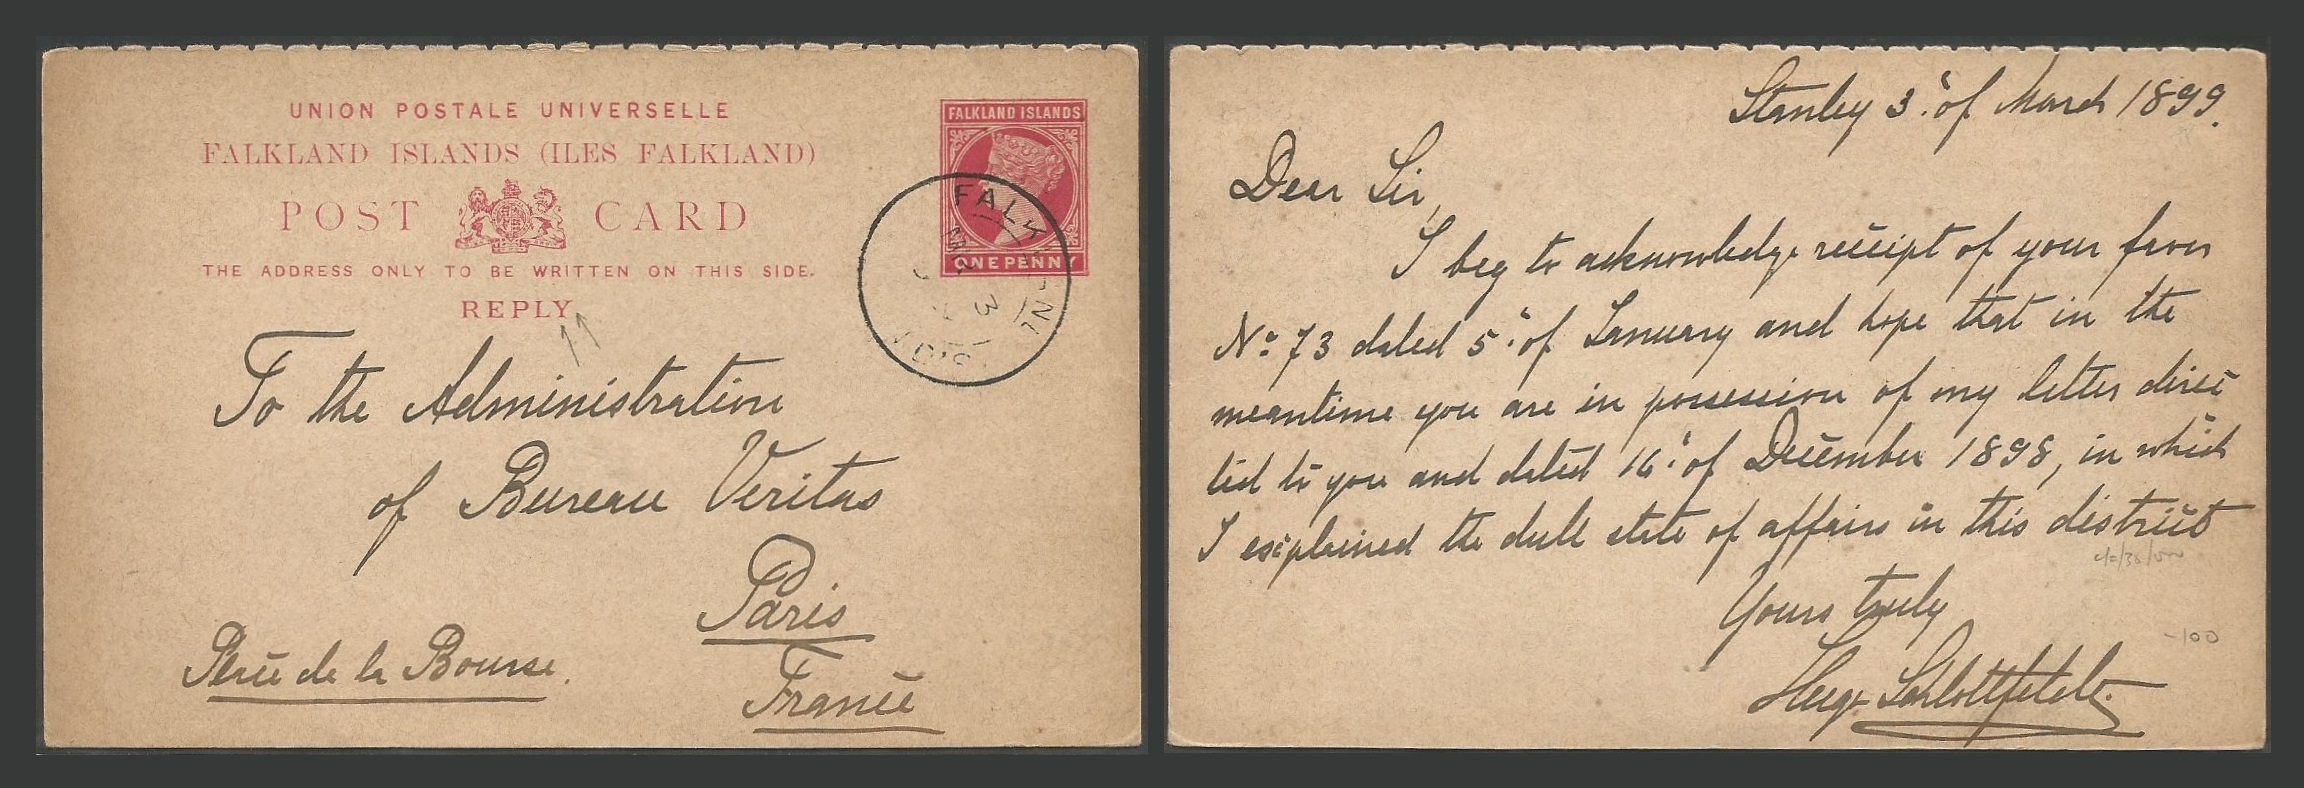 UNION POSTALE UNIVERSELLE
FALKLAND ISLANDS (ILES FALKLAND)
POST CARD
THE ADDRESS ONLY TO BE WRITTEN ON THIS SIDE.
REPLY
FALKLAND ISLANDS
ONE PENNY
To the Administration
of Bureau Veritas
Paris
Place de la Bourse.
France
Stanley 3. of March 1899.
Dear Sir,
I beg to acknowledge receipt of your favor
No. 73 dated 5. of January and hope that in the
meantime you are in possession of my letter direc
ted to you and dated 16. of December 1898, in which
I explained the dull state of affairs in this district
Yours truly
Hugo Schlottfeldt.
-100